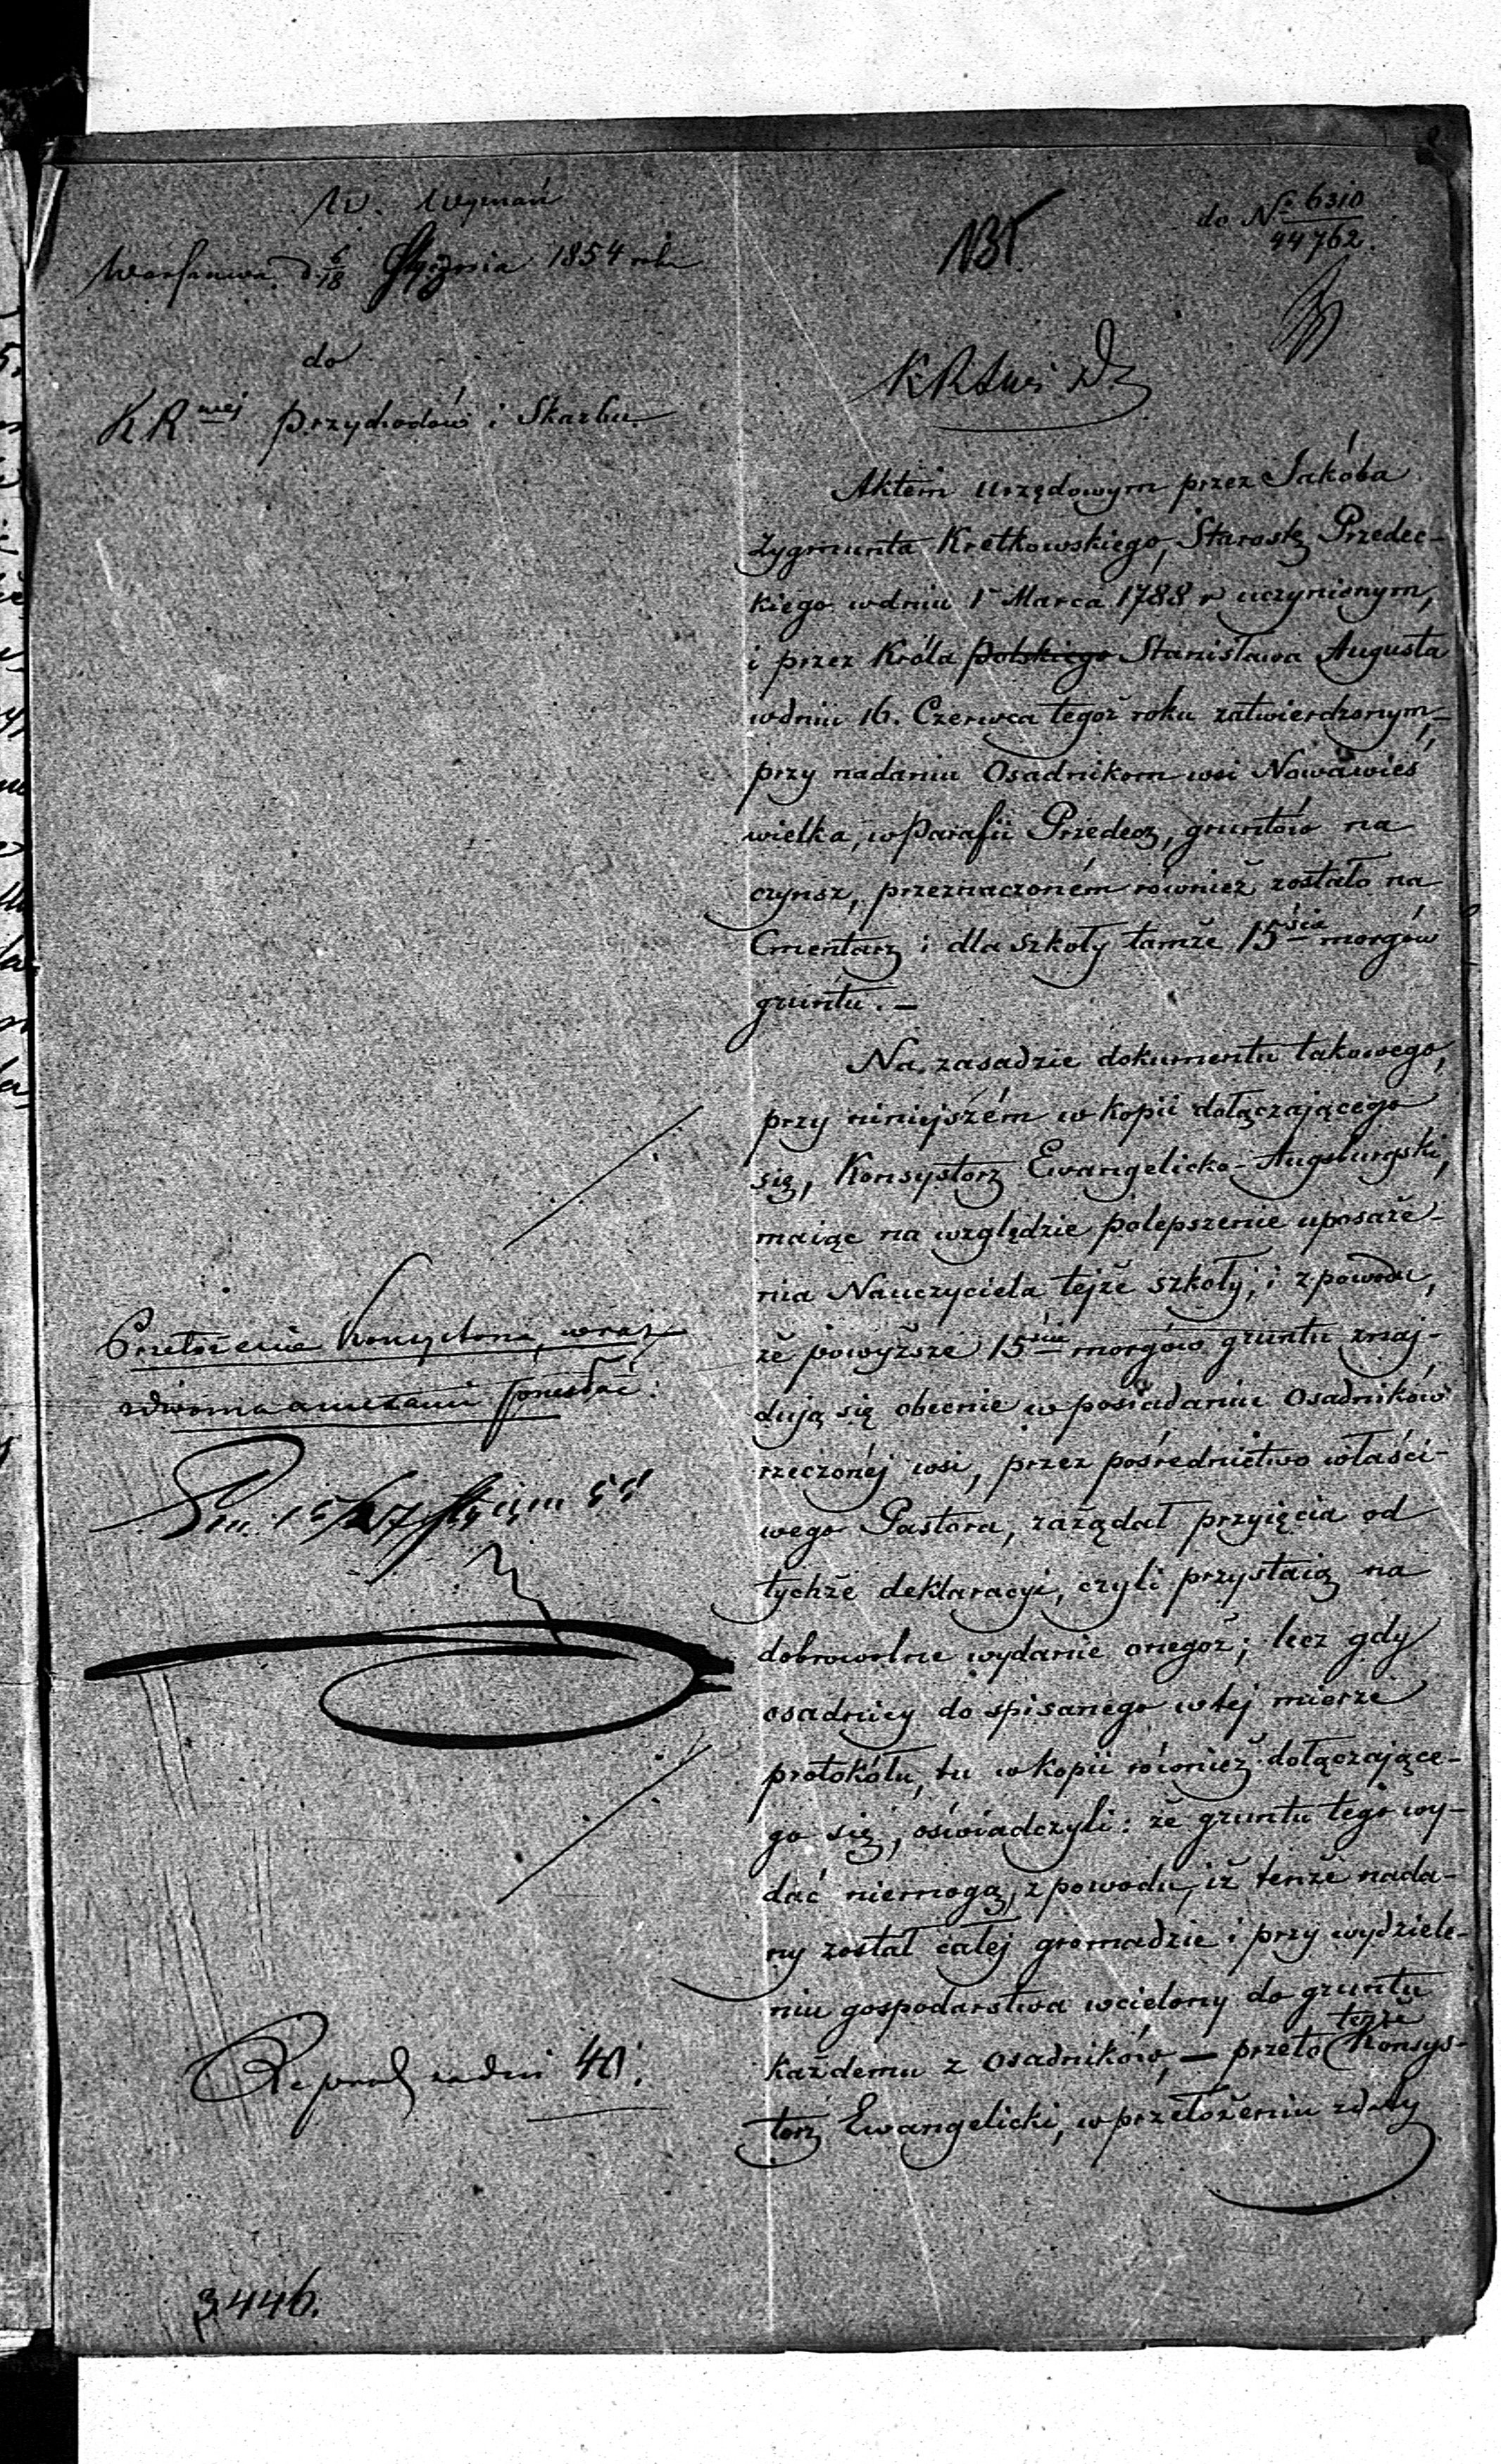 W. Wyznań
Warszawa d. 6/18 Stycznia 1854 roku
do
K R nej Przychodów i Skarbu.
do No 6310
44762.
K R S W i D
Aktem urzędowym przez Jakóba
Zygmunta Kretkowskiego, Starostę Przedec-
kiego w dniu 1 Marca 1788 r uczynionym,
i przez Króla Polskiego Stanisława Augusta
w dniu 16. Czerwca tegoż roku zatwierdzonym,-
przy nadaniu Osadnikom wsi Nowawieś
wielka, w Parafii Przedecz, gruntów na
czynsz, przeznaczoném również zostało na
Cmentarz i dla szkoły tamże 15ścia morgów
gruntu. -
Na zasadzie dokumentu takowego,
przy niniejszém w kopii dołączającego
się, Konsystorz Ewangelicko-Augsburgski,
maiąc na względzie polepszenie uposaże-
nia Nauczyciela tejże szkoły, i z powodu,
że powyższe 15ście morgów gruntu znaj-
dują się obecnie w posiadaniu Osadników
rzeczonéj wsi, przez pośrednictwo właści-
wego Pastora, zażądał przyięcia od
tychże deklaracyi, czyli przystaią na
dobrowolne wydanie onegoż; lecz gdy
osadnicy do spisanego w tej mierze
protokółu, tu w kopii również dołączające-
go się, oświadczyli: że gruntu tego wy-
dać niemogą, z powodu, iż tenże nada-
ny został całej gromadzie i przy wydziele-
niu gospodarstwa wcielony do gruntu
każdemu z Osadników, - przeto tenże Konsys-
torz Ewangelicki, w przełożeniu z daty
Przełożenie Konsystorza, wraz
z dwoma anexami posłać.
Dn. 15/27 Stycznia 54
Reprod za dni 40.
3446.